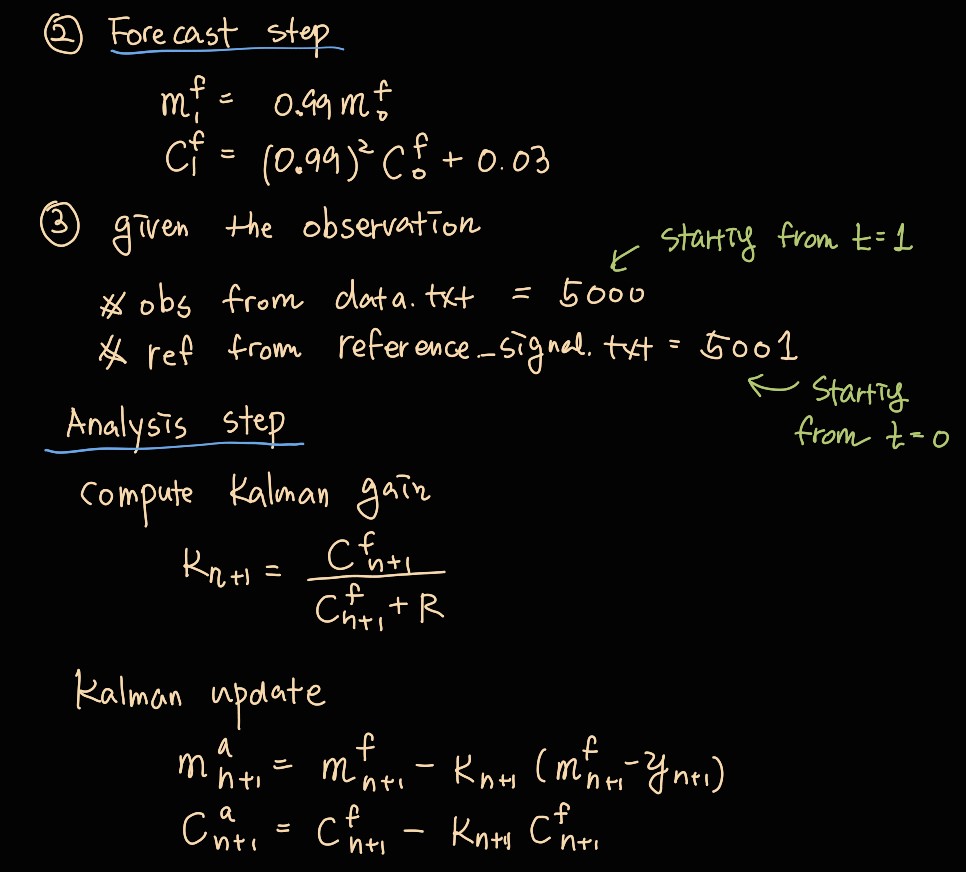 ② Forecast step
m₁ᶠ = 0.99 m₀ᶠ
C₁ᶠ = (0.99)² C₀ᶠ + 0.03
③ given the observation
starting from t=1
# obs from data.txt = 5000
# ref from reference_signal.txt = 5001
starting
from t=0
Analysis step
compute Kalman gain
Kₙ₊₁ = Cᶠₙ₊₁ / (Cᶠₙ₊₁ + R)
Kalman update
mᵃₙ₊₁ = mᶠₙ₊₁ - Kₙ₊₁ (mᶠₙ₊₁ - yₙ₊₁)
Cᵃₙ₊₁ = Cᶠₙ₊₁ - Kₙ₊₁ Cᶠₙ₊₁